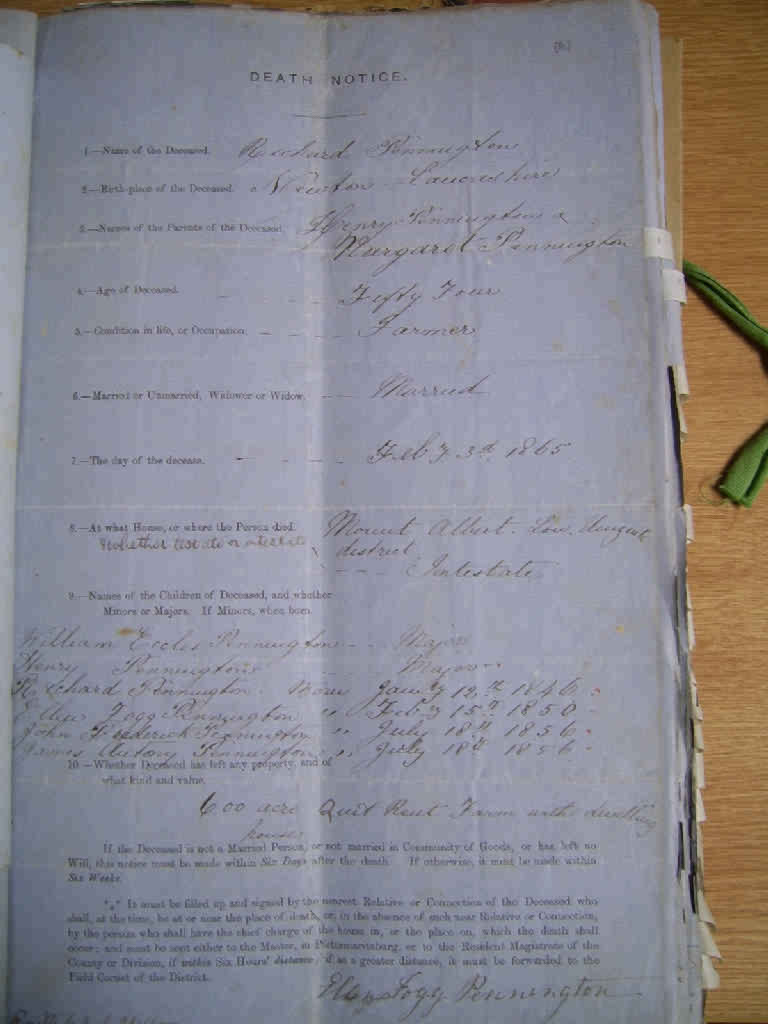 DEATH NOTICE.
1.—Name of the Deceased. Richard Pennington
2.—Birth-place of the Deceased. Newton Lancashire
3.—Names of the Parents of the Deceased. Henry Pennington &
Margaret Pennington
4.—Age of Deceased. Fifty Four
5.—Condition in life, or Occupation. Farmer
6.—Married or Unmarried, Widower or Widow. Married
7.—The day of the decease. Feby 3d. 1865
8.—At what House, or where the Person died. Mount Albert. Low.
Whether testate or intestate district
Intestate
9.—Names of the Children of Deceased, and whether
Minors or Majors. If Minors, when born.
William Eccles Pennington Major
Henry Pennington Major
Richard Pennington. Born Jany 12th 1846
Ellen Fogg Pennington " Feby 15th 1850
John Frederick Pennington " July 18th 1856
James Pennington " July 18th 1856
10.—Whether Deceased has left any property, and of
what kind and value.
600 acre Quit Rent Farm with dwelling
house
If the Deceased is not a Married Person, or not married in Community of Goods, or has left no
Will, this notice must be made within Six Days after the death. If otherwise, it must be made within
Six Weeks.
*** It must be filled up and signed by the nearest Relative or Connection of the Deceased who
shall, at the time, be at or near the place of death, or, in the absence of such near Relative or Connection,
by the person who shall have the chief charge of the house in, or the place on, which the death shall
occur; and must be sent either to the Master, in Pietermaritzburg, or to the Resident Magistrate of the
County or Division, if within Six Hours' distance; if at a greater distance, it must be forwarded to the
Field Cornet of the District.
Ellen Fogg Pennington